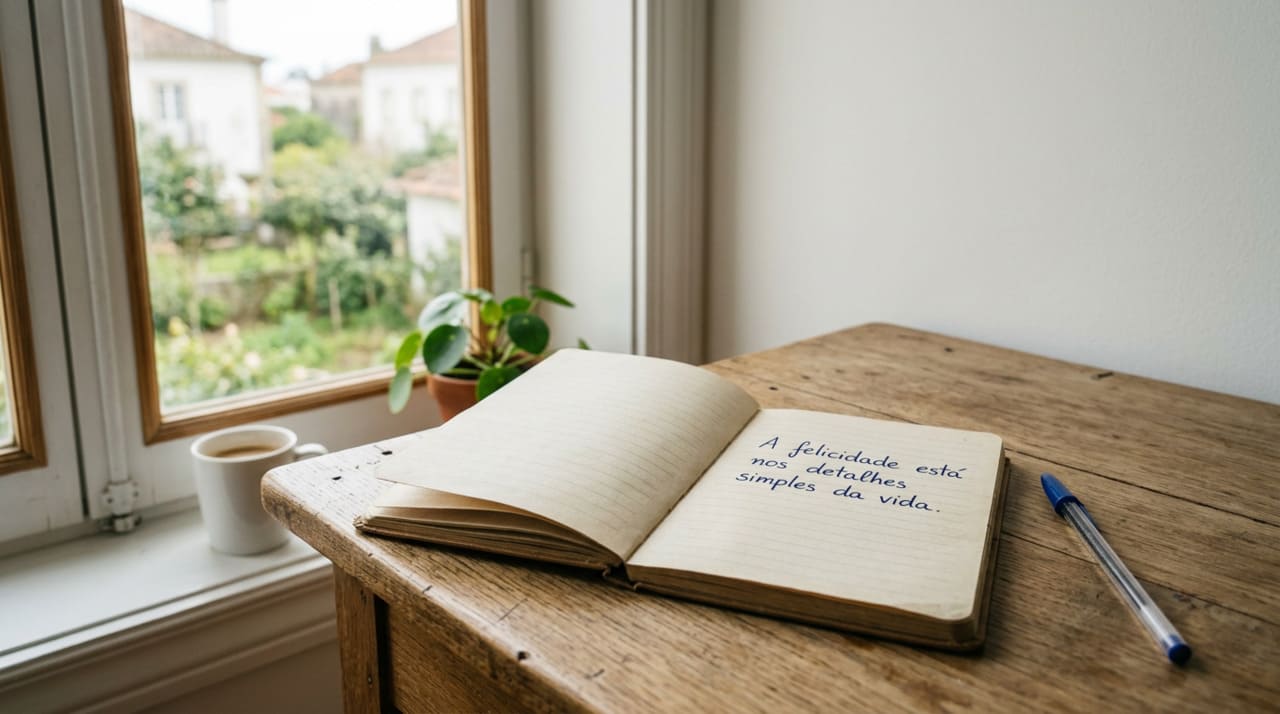 A felicidade está
nos detalhes
simples da vida.